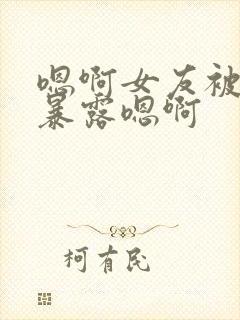 嗯啊女友被
暴露嗯啊
柯有民